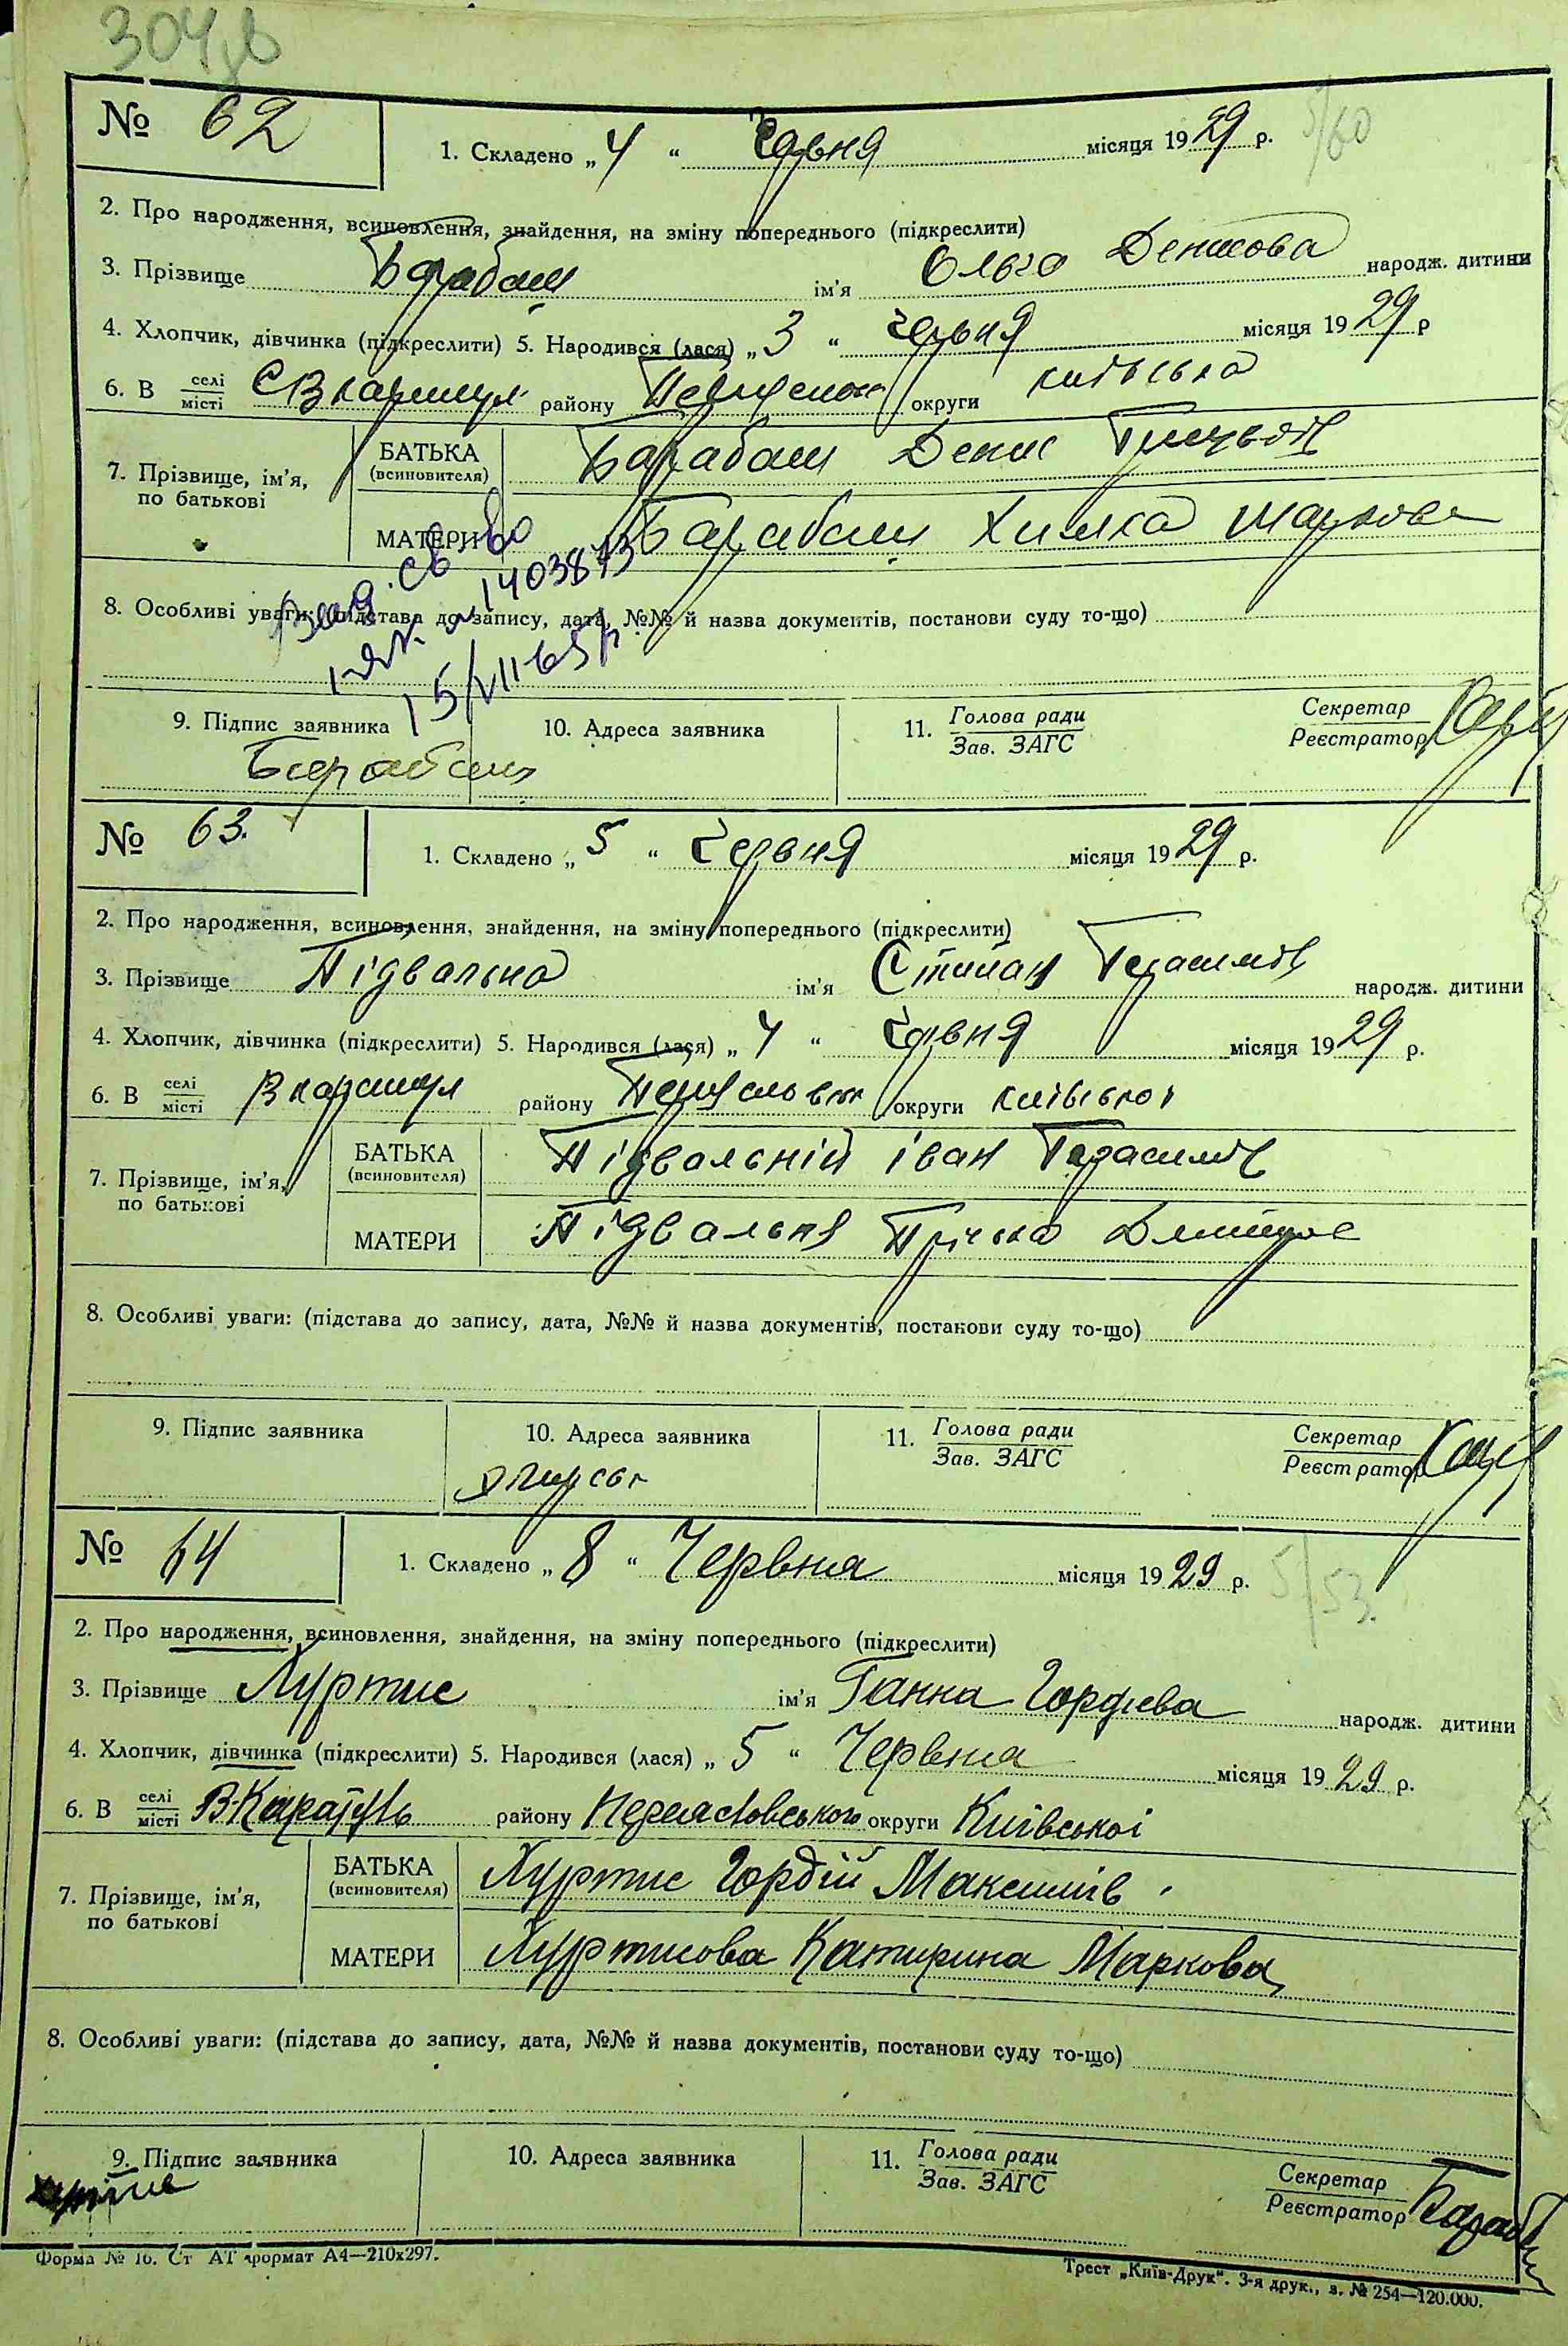 304зв
№ 62
1. Складено „4“ Червня місяця 1929 р.
5/60
2. Про народження, всиновлення, знайдення, на зміну попереднього (підкреслити)
3. Прізвище Барабаш ім'я Ольга Денисова народж. дитини
4. Хлопчик, дівчинка (підкреслити) 5. Народився (лася) „3“ червня місяця 1929 р
6. В селі/місті В Каратул району округи київська
7. Прізвище, ім'я, по батькові
БАТЬКА (всиновителя) Барабаш Денис
МАТЕРИ Барабаш Химка Маркова
8. Особливі уваги: (підстава до запису, дата, №№ й назва документів, постанови суду то-що)
1403873
15/VII 65 р
9. Підпис заявника 10. Адреса заявника 11. Голова ради / Зав. ЗАГС Секретар / Реєстратор
Барабаш
№ 63.
1. Складено „5“ Червня місяця 1929 р.
2. Про народження, всиновлення, знайдення, на зміну попереднього (підкреслити)
3. Прізвище Підвальна ім'я Стипан Герасимів народж. дитини
4. Хлопчик, дівчинка (підкреслити) 5. Народився (лася) „4“ Червня місяця 1929 р.
6. В селі/місті В Каратул району округи київської
7. Прізвище, ім'я, по батькові
БАТЬКА (всиновителя) Підвальній іван Герасимів
МАТЕРИ Підвальня Пріська
8. Особливі уваги: (підстава до запису, дата, №№ й назва документів, постанови суду то-що)
9. Підпис заявника 10. Адреса заявника 11. Голова ради / Зав. ЗАГС Секретар / Реєстратор
№ 64
1. Складено „8“ Червня місяця 1929 р.
5/53.
2. Про народження, всиновлення, знайдення, на зміну попереднього (підкреслити)
3. Прізвище Хуртис ім'я Ганна Гордієва народж. дитини
4. Хлопчик, дівчинка (підкреслити) 5. Народився (лася) „5“ Червня місяця 1929 р.
6. В селі/місті В-Каратуль району Переяславського округи Київської
7. Прізвище, ім'я, по батькові
БАТЬКА (всиновителя) Хуртис Гордій Максимів
МАТЕРИ Хуртисова Катирина Маркова
8. Особливі уваги: (підстава до запису, дата, №№ й назва документів, постанови суду то-що)
9. Підпис заявника 10. Адреса заявника 11. Голова ради / Зав. ЗАГС Секретар / Реєстратор
Форма № 16. Ст АТ формат А4—210х297.
Трест „Київ-Друк“. 3-я друк., з. № 254—120.000.